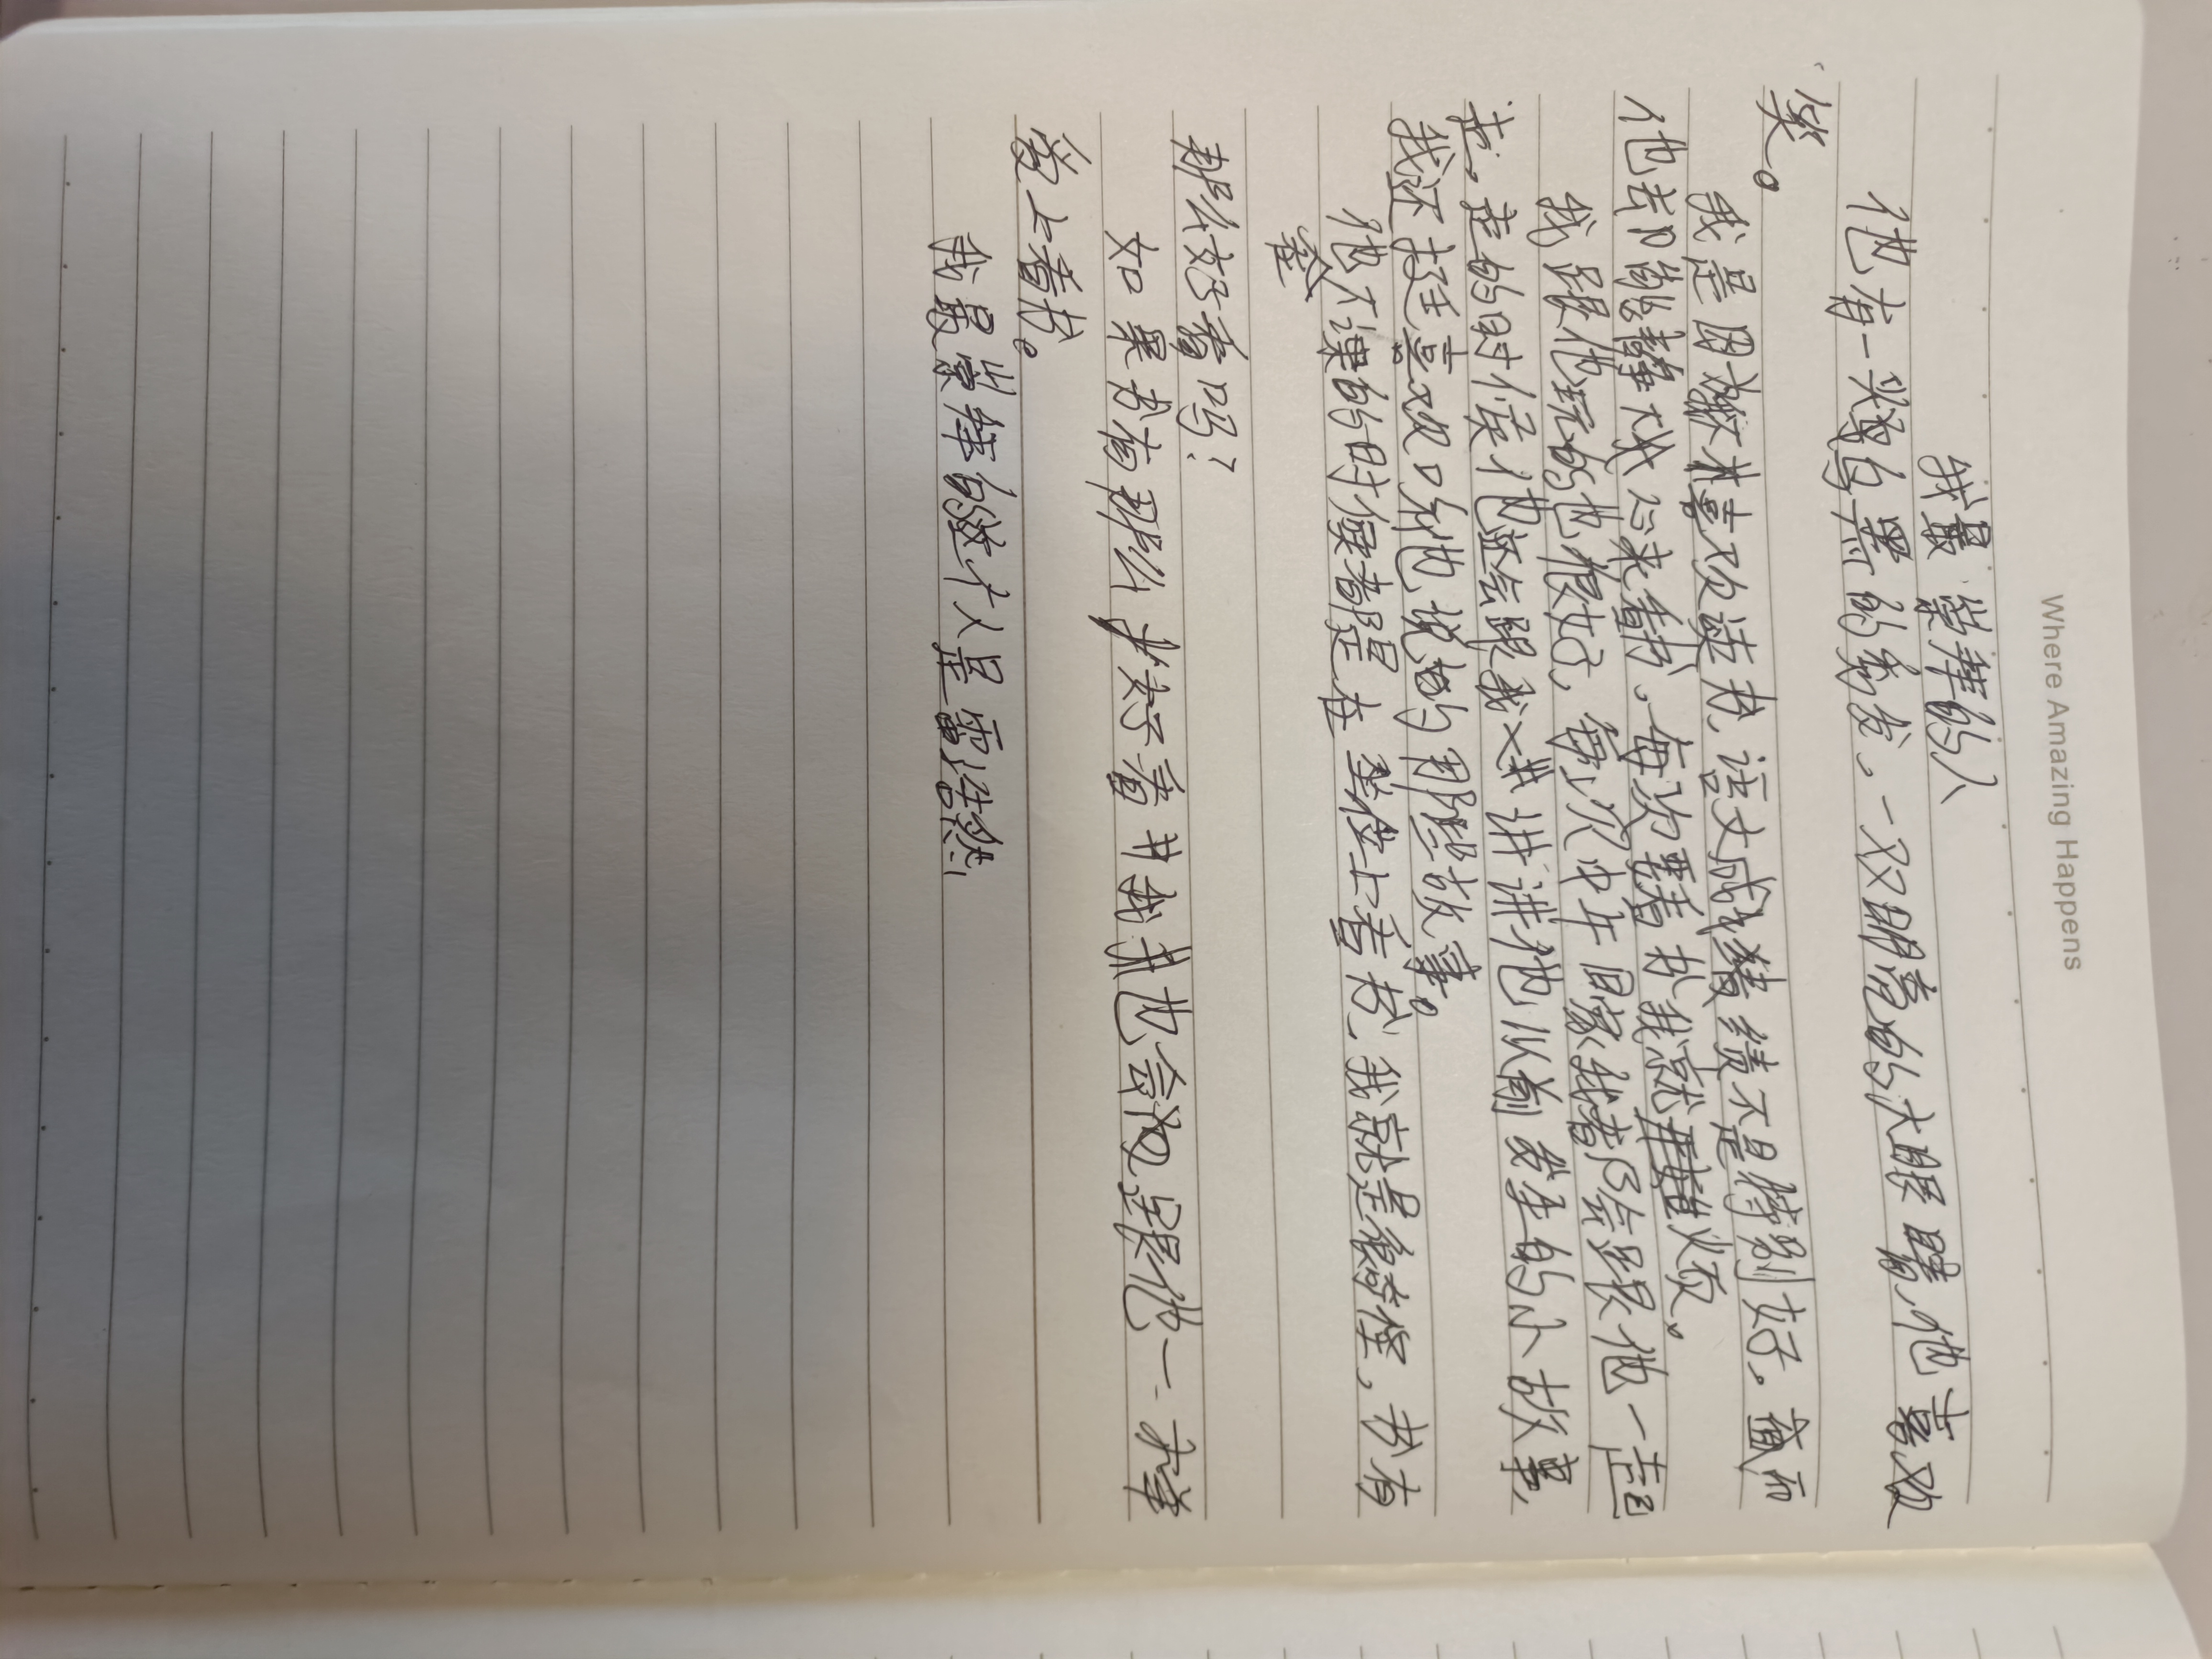 Where Amazing Happens
我最崇拜的人
他有一头乌黑的多发。一双明亮的大眼睛,他喜欢
笑。
我是因为不喜欢读书,语文成绩不是特别好。前而
他去能静下心来看书,每次要看书我就烦。
我跟他玩的也很好,每次中午回家我都会跟他一起
走。走的时候他还会跟我讲讲他以前发生的小故事,
我还挺喜欢听他说的那些故事。
他下课的时候都是在坐位上看书,我就是很奇怪,书有
那么好看吗?
如果书有那么好看我也会跟他一样
爱上看书。
我最崇拜的这个人是雷浩然